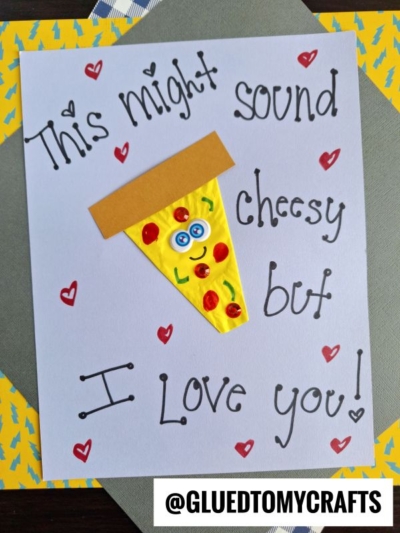 This might sound
cheesy
but
I Love you!
@GLUEDTOMYCRAFTS